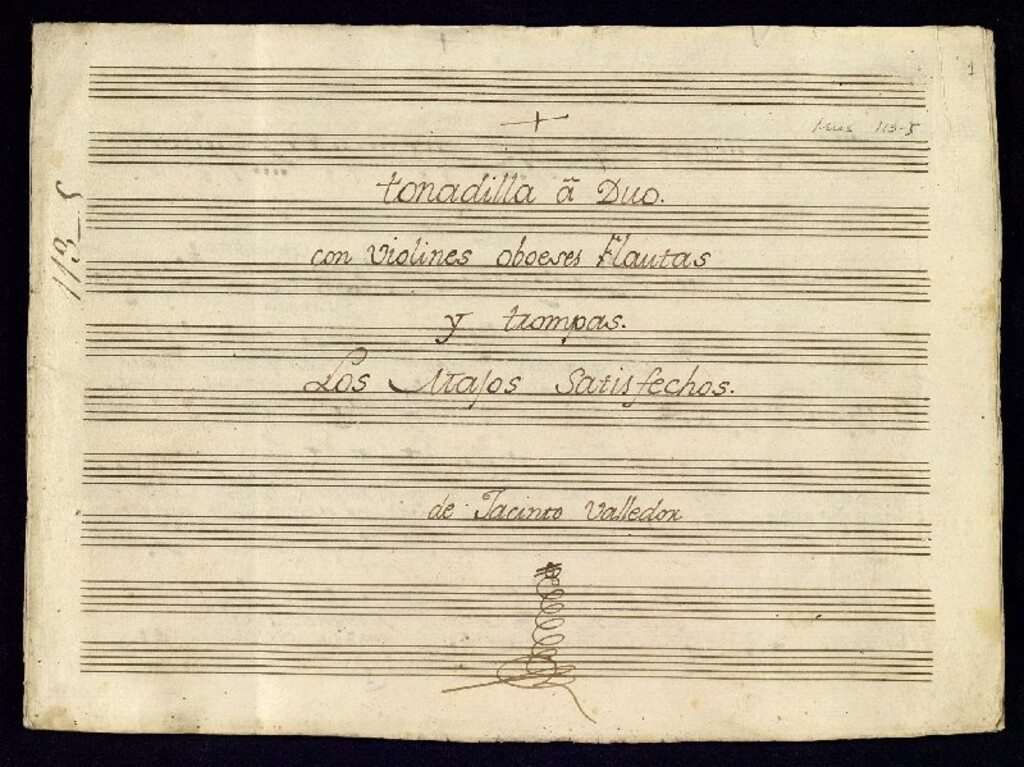 1
+
Mus 113-5
tonadilla ã Duo.
con violines oboeses flautas
y trompas.
Los Majos Satisfechos.
de Jacinto Valledor
113-5